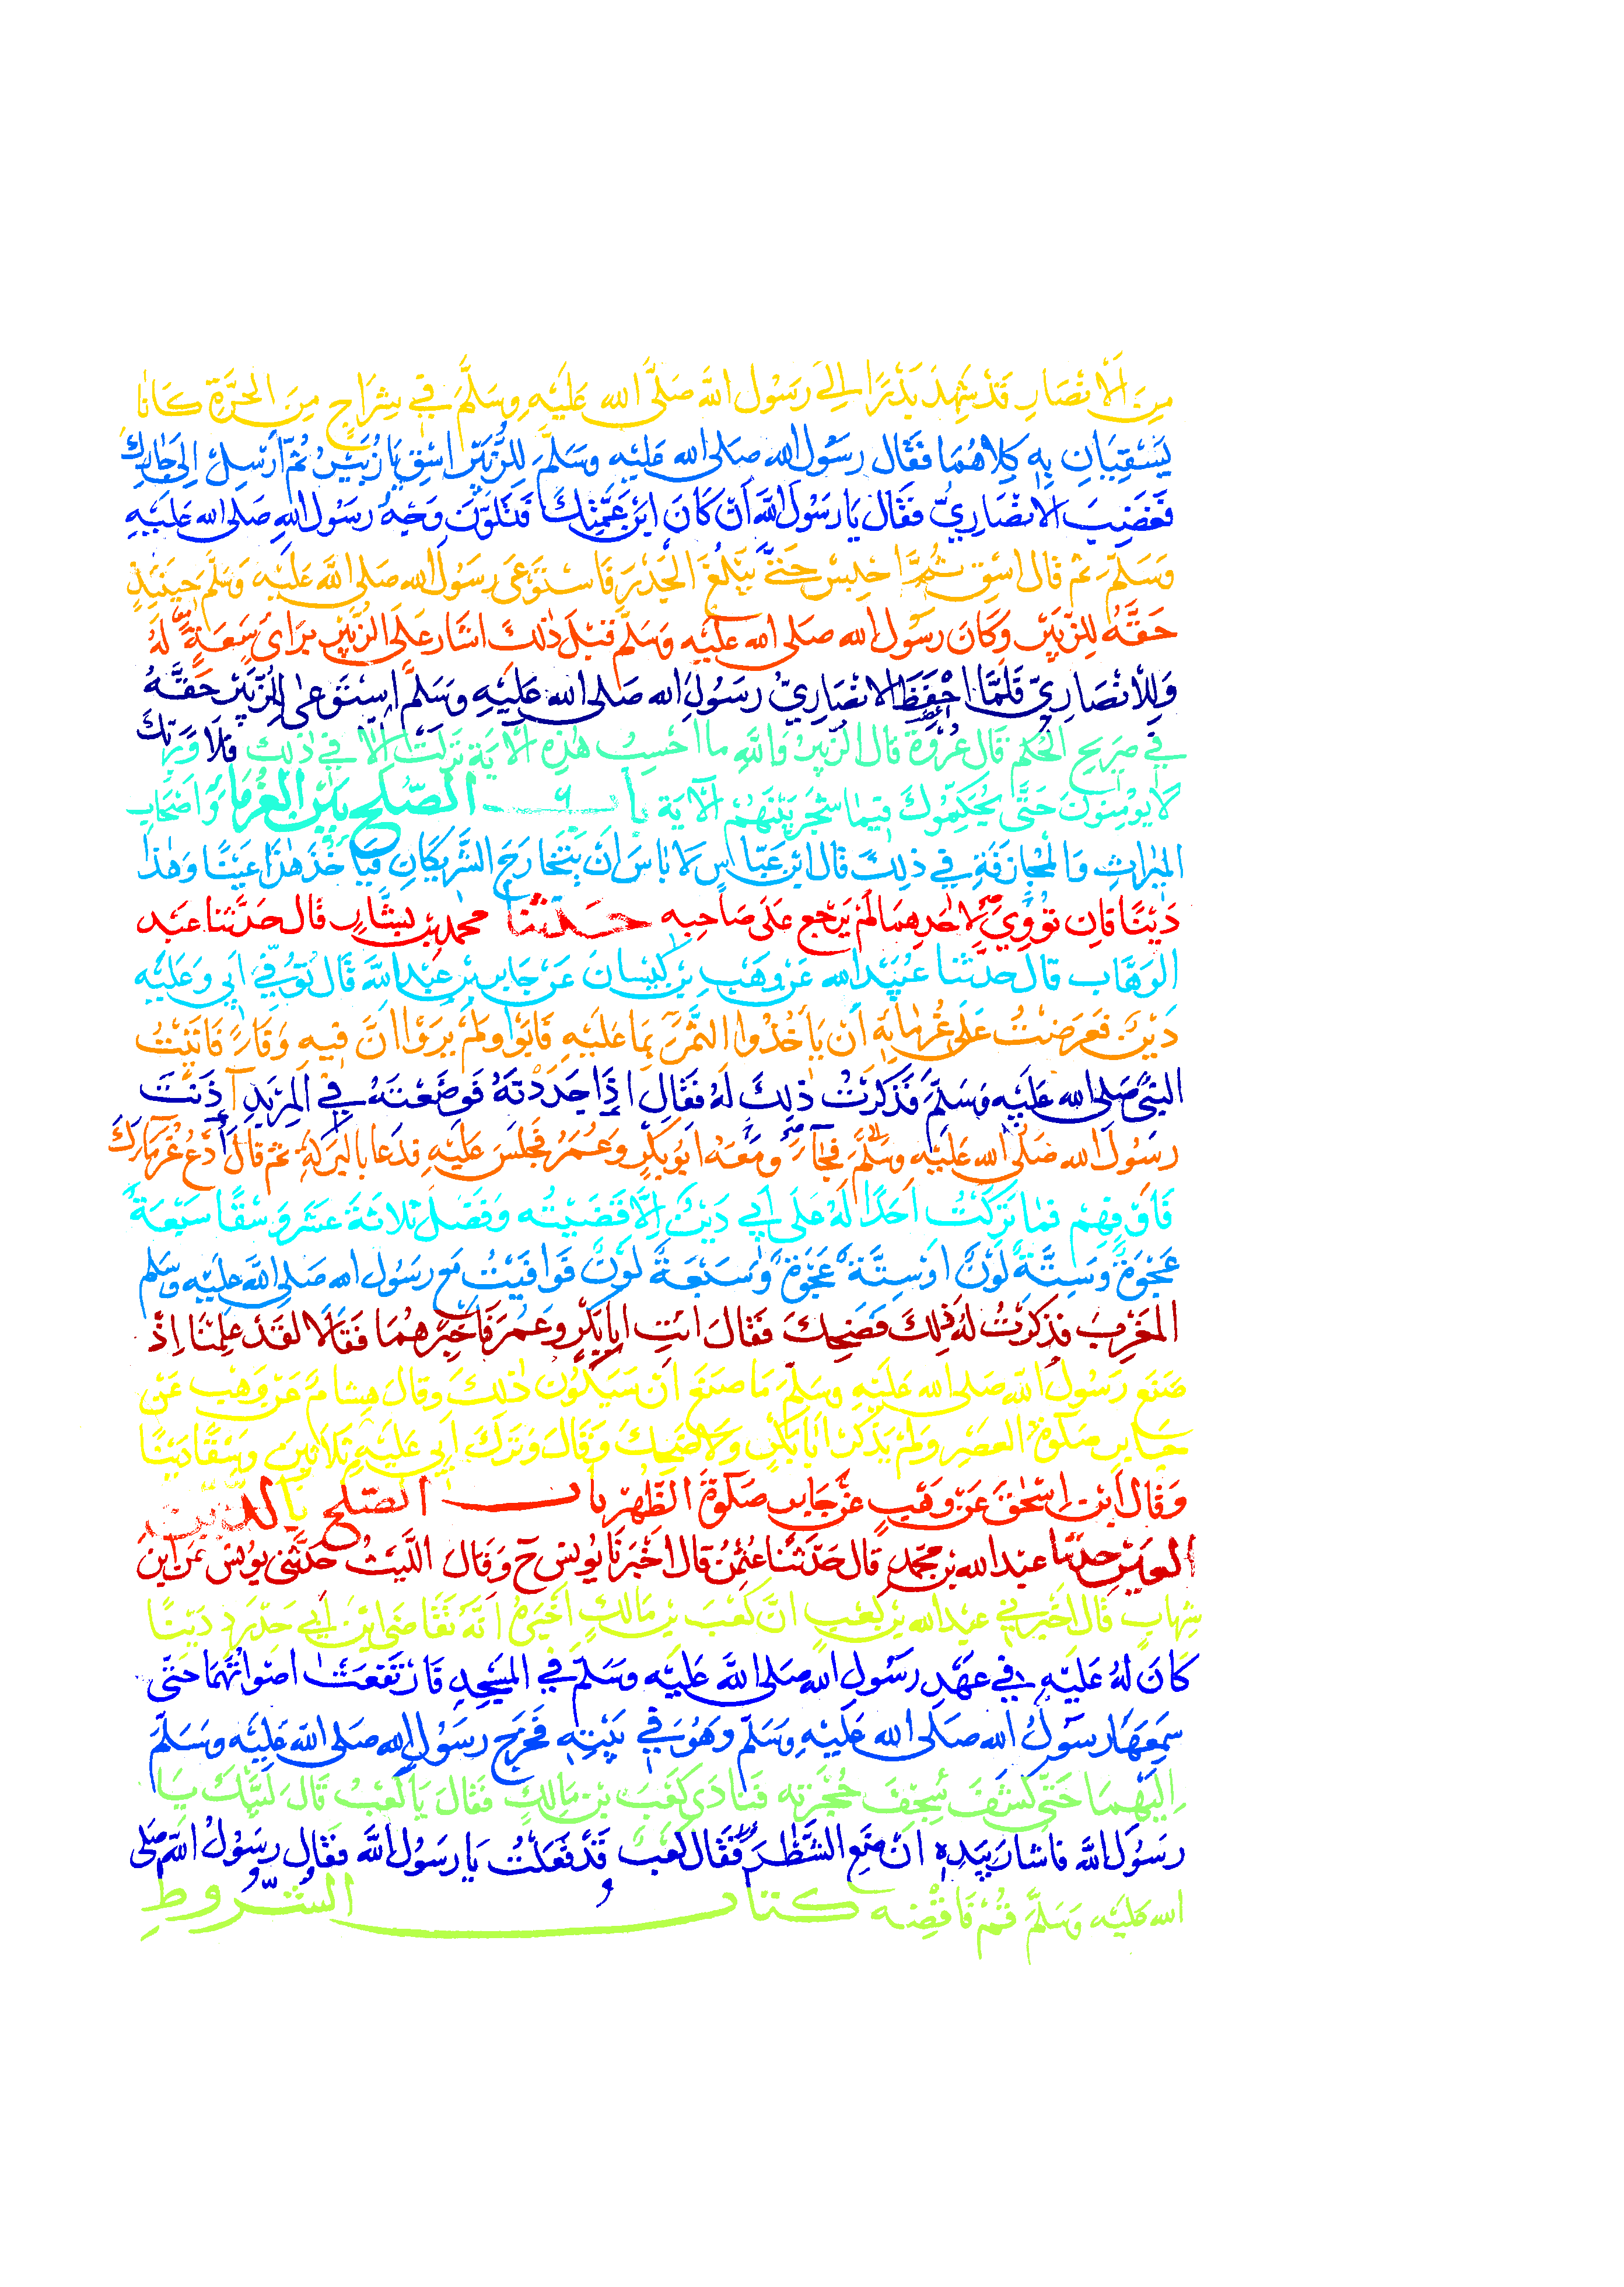 مِنَ الْاَنْصَارِ قَدْ شَهِدَ بَدْرًا اِلٰى رَسُوْلِ اللّٰهِ صَلَّى الله عَلَيْهِ وَسَلَّمَ فِيْ شِرَاجٍ مِنَ الْحَرَّةِ كَانَا
يَسْقِيَانِ بِهٖ كِلَاهُمَا فَقَال رسُوْلُ الله صلى الله عَلَيْهِ وسَلَّمَ لِلزُّبَيْرِ اسْقِ يَا زُبَيْرُ ثُمَّ اَرْسِلْ اِلٰى جَارِكَ
فَغَضِبَ الانْصَارِيُّ فقَال يَا رسَوْلَ اللَّهِ اَنْ كَانَ ابْنَ عَمَّتِكَ فَتَلَوَّنَ وَجْهُ رسَوْل اللهِ صَلى الله عَلَيْهِ
وَسَلَّمَ ثم قَال اسْقِ ثُمَّ احْبِسْ حَتّٰى يَبْلُغَ الْجَدْرَ فَاسْتَوْعَى رسَوُلُ الله صَلى اللَّهُ عَلَيْهِ وَسَلَّمَ حِينَئِذٍ
حَقَّهُ لِلزُّبَيْرِ وَكَانَ رسُوْل الله صلى الله عَلَيْهِ وَسَلَّم قَبْلَ ذٰلِكَ اشَارَ عَلَى الزُّبَيْرِ بِرَايٍ سَعَةٍ لَهُ
وَلِلْانْصَارِيِّ فَلَمَّا اَحْفَظَ الانْصَارِيُّ رسَوُلَ الله صَلى الله عَلَيْهِ وَسَلَّم اسْتَوْعٰى لِلزُّبَيْرِ حَقَّهُ
فِي صَرِيْحِ الْحُكْمِ قَال عُرْوَةُ قال الزُّبَيْرُ وَاللَّهِ ما احْسِبُ هٰذِهِ الْاٰيَةَ نَزَلَتْ اِلَّا فِيْ ذٰلِكَ فَلَا وَرَبِّكَ
لَا يُوْمِنُوْنَ حَتّٰى يُحَكِّمُوْكَ فِيْمَا شَجَرَ بَيْنَهُمْ الْاٰيَة باب الصُّلْحِ بَيْنَ الْغُرَمَاءِ وَاَصْحَابِ
الْمِيْرَاثِ وَالْمُجَازَفَةِ فِي ذٰلِكَ قَال ابْنُ عَبَّاسٍ لَا بَاسَ اَنْ يَتَخَارَجَ الشَّرِيْكَانِ فَيَاخُذَ هٰذَا عَيْنًا وَهٰذَا
دَيْنًا فَاِنْ تَوِيَ لِاَحَدِهِمَا لَمْ يَرْجِع عَلَى صَاحِبِه حَدَّثَنَا محمد بن بَشَّارٍ قَال حَدَّثَنا عَبْد
الْوَهَّاب قال حَدَّثَنا عُبَيْدُ الله عَنْ وَهَبِ بْنِ كَيْسَانَ عَنْ جَابِرِ بْنِ عَبْدِ اللَّهِ قَالَ تُوُفِّيَ اَبِي وَعَلَيْهِ
دَيْنٌ فَعَرَضْتُ عَلَى غُرَمَائِهِ اَنْ يَاخُذُوا التَّمْرَ بِمَا عَلَيْهِ فَاَبَوْا وَلَمْ يَرَوْا اَنَّ فِيْهِ وَفَاءً فَاَتَيْتُ
النَّبِيَّ صَلى الله عَلَيْهِ وَسَلَّمَ فَذَكَرْتُ ذٰلِكَ لَهُ فَقَالَ اِذَا جَدَدْتَهُ فَوَضَعْتَهُ فِي الْمِرْبَدِ اٰذَنْتَ
رسَوْلَ الله صَلّٰى الله عَلَيْهِ وسَلَّمَ فَجَاءَ وَمَعَهُ ابُوْ بَكْرٍ وَعُمَرُ فَجَلَسَ عَلَيْهِ فَدَعَا بِالْبَرَكَةِ ثم قَالَ اُدْعُ غُرَمَاءَكَ
فَاَوْفِهِمْ فَمَا تَرَكْتُ اَحَدًا لَهُ عَلَى اَبِي دَيْنٌ اِلَّا قَضَيْتُه وَفَضَلَ ثَلَاثَةَ عَشَرَ وَسْقًا سَبْعَةٌ
عَجْوَةٌ وَسِتَّةٌ لَوْنٌ اَوْ سِتَّةٌ عَجْوَةٌ وَسَبْعَةٌ لَوْنٌ فَوَافَيْتُ مَعَ رسَوُل الله صَلى اللَّه عَلَيْهِ وسَلم
الْمَغْرِبَ فذَكَرْتُ لَهُ ذٰلِكَ فَضَحِكَ فَقَالَ ائتِ ابَا بَكْرٍ وَعُمَرَ فَاَخْبِرْهُمَا فَقَالَا لَقَدْ عَلِمْنَا اِذْ
صَنَعَ رَسُوْلُ اللّه صَلى الله عَلَيْهِ وسَلَّمَ مَا صَنَعَ اَنْ سَيَكُوْنُ ذٰلِكَ وَقَالَ هِشَامٌ عَنْ وَهْبٍ عَنْ
جَابِرٍ صَلٰوةَ الْعَصْرِ وَلَمْ يَذْكُرْ اَبَا بَكْرٍ وَلَا ضَحِكَ وَقَالَ وَتَرَكَ اَبِي عَلَيْهِ ثَلَاثِيْنَ وَسْقًا دَيْنًا
وَقَال ابْنُ اِسْحٰقَ عَنْ وَهْبٍ عَنْ جَابِرٍ صَلٰوةَ الظُّهْرِ باب الصُّلْحِ بِالدَّيْنِ
العَيْنِ حدثنا عَبْدُ الله بن مُحَمَّدٍ قَال حَدَّثَنَا عُثْمٰنُ قال اَخْبَرَنَا يُوْنُسُ ح وَقَال اللَّيْثُ حَدَّثَنِي يُوْنُسُ عَنِ ابْنِ
شِهَابٍ قَال اَخْبَرَنِي عَبْدُ الله بْن كَعْبٍ اَنَّ كَعْبَ بْنَ مَالِكٍ اَخْبَرَهُ اَنَّهُ تَقَاضَى ابْنَ اَبِي حَدْرَدٍ دَيْنًا
كَانَ لَهُ عَلَيْهِ فِي عَهْدِ رسَوُلِ الله صَلى اللَّه عَلَيْهِ وَسَلَّم فِي الْمَسْجِدِ فَارْتَفَعَتْ اصْوَاتُهُمَا حَتّٰى
سَمِعَهَا رسَوُلُ الله صَلَى الله عَلَيْهِ وَسَلَّم وَهُوَ فِيْ بَيْتِهٖ فَخَرَجَ رسَوُل الله صَلى اللَّه عَلَيْهِ وَسَلَّمَ
اِلَيْهِمَا حَتّٰى كَشَفَ سِجْفَ حُجْرَتِه فَنَادَى كَعْبَ بْن مَالِكٍ فَقَالَ يَا كَعْبُ قَالَ لَبَّيْكَ يَا
رسَوُلَ اللَّه فَاَشَارَ بِيَدِهٖ اَنْ ضَعِ الشَّطْرَ فَقَال كَعْبٌ قَدْ فَعَلْتُ يَا رسَوُلَ اللَّه فَقَال رسَوُلُ اللّه صَلى
الله عَلَيْه وَسَلَّمَ قُمْ فَاقْضِهِ كتاب الشُّرُوْطِ